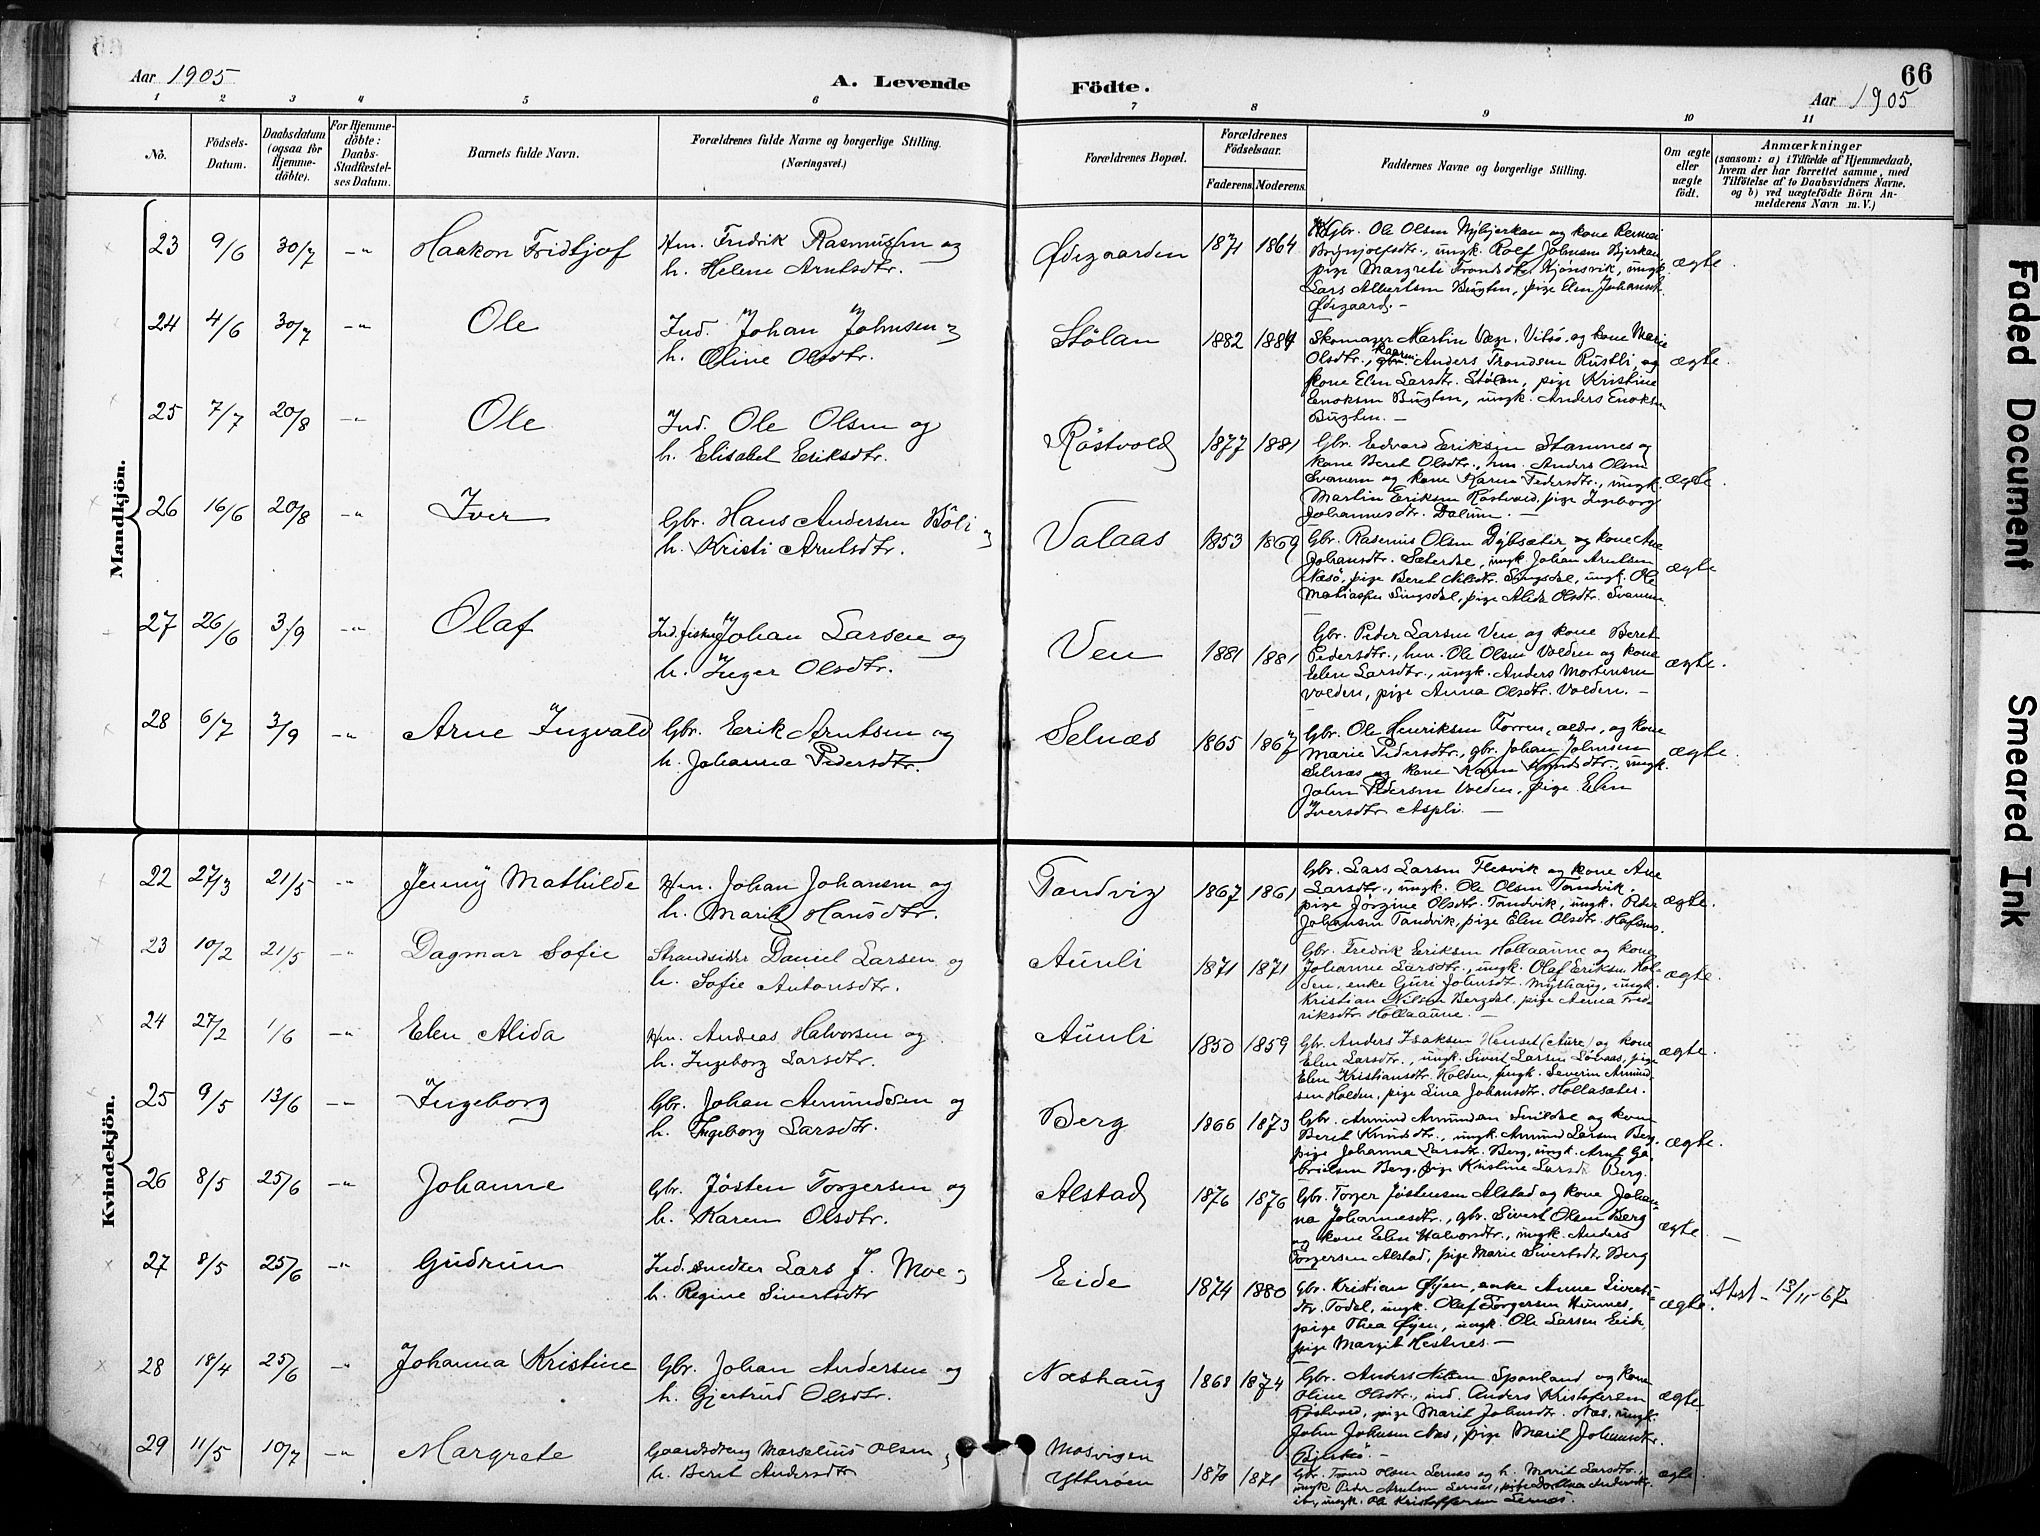 66
Aar 1905
A. Levende Födte.
Aar 1905
1 2 3 4 5 6 7 8 9 10 11
No.
Födsels-Datum.
Daabsdatum (ogsaa for Hjemme-döbte).
For Hjemme-döbte: Daabs-Stadfæstel-ses Datum.
Barnets fulde Navn.
Forældrenes fulde Navne og borgerlige Stilling. (Næringsvei.)
Forældrenes Bopæl.
Forældrenes Födselsaar.
Faderens. Moderens.
Faddernes Navne og borgerlige Stilling.
Om ægte eller uægte födt.
Anmærkninger
(saasom: a) i Tilfælde af Hjemmedaab,
hvem der har forrettet samme, med
Tilföielse af to Daabsvidners Navne.
og b) ved uægtefödte Börn An-
melderens Navn m. V.)
Mandkjön.
23 9/6 30/7 -"- Haakon Fridtjof Hm. Fredrik Rasmussen og
h. Helene Arntsdtr.
Ødegaarden 1871 1864
Gbr. Ole Olsen Nybjerkan og kone
Brynjolfsdtr., ungk. Rolf Johnsen Bjerkan,
pige Margrete Trondsdtr. Kjønsvik, ungk.
Lars Albertsen Bugten, pige Elen Johansdtr.
Ødegaard. –
ægte.
24 4/6 30/7 -"- Ole Ind. Johan Johnsen og
h. Oline Olsdtr.
Stølan 1882 1884
Skomager Martin Vitsø og kone Marie
Olsdtr., Anders Trondsen Rustli og
kone Elen Larsdtr. Stølan, pige Kristine
Enoksen Bugten, ungk. Anders Enoksen
Bugten. –
ægte.
25 7/7 20/8 -"- Ole Ind. Ole Olsen og
h. Elisabet Eriksdtr.
Røstvold 1877 1881
Gbr. Edvard Eriksen Stamnes og
kone Beret Olsdtr., hm. Anders Olsen
Svanem og kone Karen Pedersdtr., ungk.
Martin Eriksen Røstvold, pige Ingeborg
Johannesdtr. Dalum. –
ægte.
26 16/6 20/8 -"- Iver Gbr. Hans Andersen Böli og
h. Kristi Arntsdtr.
Valaas 1853 1869
Gbr. Rasmus Olsen Dybsæter og kone Ane
Johansdtr. Sæterdal, ungk. Johan Arntsen
Næsö, pige Beret Nilsdtr. Singsdal, ungk. Ole
Mathiassen Singsdal, pige Alida Olsdtr. Svanem.
ægte
27 26/6 3/9 -"- Olaf Ind. fisker Johan Larsen og
h. Inger Olsdtr.
Ven 1881 1881
Gbr. Peder Larsen Ven og kone Beret
Pedersdtr., hm. Ole Olsen Volden og kone
Elen Larsdtr., ungk. Anders Mortensen
Volden, pige Anna Olsdtr. Volden. –
ægte.
28 6/7 3/9 -"- Arne Ingvald Gbr. Erik Arntsen og
h. Johanna Pedersdtr.
Selnæs 1865 1867
Gbr. Ole Henriksen Forren, ældr., og kone
Marie Pedersdtr., gbr. Johan Johnsen
Selnæs og kone Karen Knudsdtr., ungk.
John Pedersen Volden, pige Elen
Iversdtr. Aspli. –
ægte.
Kvindekjön.
22 27/3 21/5 -"- Jenny Mathilde Hm. Johan Johansen og
h. Marit Hansdtr.
Tandvig 1867 1861
Gbr. Lars Larsen Flesvik og kone Ane
Larsdtr., ungk. Ole Olsen Tandvik,
pige Jørgine Olsdtr. Tandvik, ungk. Peder
Johansen Tandvik, pige Elen Olsdtr. Hafsmo.
ægte.
23 10/2 21/5 -"- Dagmar Sofie Strandsidder Daniel Larsen og
h. Sofie Antonsdtr.
Aunli 1871 1871
Gbr. Fredrik Eriksen Hollaaune og kone
Johanne Larsdtr., ungk. Olaf Eriksen Hol-
den, enke Guri Johnsdtr. Myrhaug, ungk.
Kristian Nilsen Bergdal, pige Anna Fred-
riksdtr. Hollaaune. –
ægte.
24 27/2 1/6 -"- Elen Alida Hm. Andreas Halvorsen og
h. Ingeborg Larsdtr.
Aunli 1850 1859
Gbr. Anders Isaksen Henset (Aure) og kone
Elen Larsdtr., ungk. Sivert Larsen Løvaas, pige
Elen Kristiansdtr. Holden, ungk. Severin Amund-
sen Holden, pige Lina Johansdtr. Hollasæter.
ægte.
25 9/5 13/6 -"- Ingeborg Gbr. Johan Amundsen og
h. Ingeborg Larsdtr.
Berg 1866 1873
Gbr. Amund Amundsen Snildal og kone
Beret Knudsdtr., ungk. Amund Larsen Berg,
pige Johanna Larsdtr. Berg, ungk. Arnt Ga-
brielsen Berg, pige Kristine Larsdtr. Berg.
ægte.
26 8/5 25/6 -"- Johanne Gbr. Jøsten Torgersen og
h. Karen Olsdtr.
Alstad 1876 1876
Gbr. Torger Jøstensen Alstad og kone Johan-
na Johannesdtr., gbr. Sivert Olsen Berg
og kone Elen Halvorsdtr., ungk. Anders
Torgersen Alstad, pige Marie Sivertsdtr. Berg
ægte. –
27 8/5 25/6 -"- Gudrun Ind. snedker Lars J. Moe og
h. Regine Sivertsdtr
Eide 1874 1880
Gbr. Kristian Øyen, enke Anne Siverts-
dtr. Todal, ungk. Olaf Torgersen Hunnes,
pige Thea Øyen, ungk. Ole Larsen Eide,
pige Margit Hestnes. –
ægte.
Att – 13/11-67
28 18/4 25/6 -"- Johanna Kristine Gbr. Johan Andersen og
h. Gjertrud Olsdtr.
Næshaug 1868 1874
Gbr. Anders Nilsen Sponland og kone
Oline Olsdtr., ind. Anders Kristofersen
Røstvold, pige Marit Johnsdtr. Næs, ungk.
John Johnsen Næs, pige Marit Johannsdtr.
ægte.
29 11/5 10/7 -"- Margrete Gaardsdreng Marselius Olsen og
h. Beret Andersdtr
Mosvigen
Ytterøen 1870 1871
Gbr. Tond Olsen Lernæs og h. Marit Larsdtr.,
ungk. Peder Arntsen Lernæs, pige Dortea Andersdtr.
ib., ungk. Ole Kristoffersen Lernæs.
ægte.
Faded Document
Smeared Ink